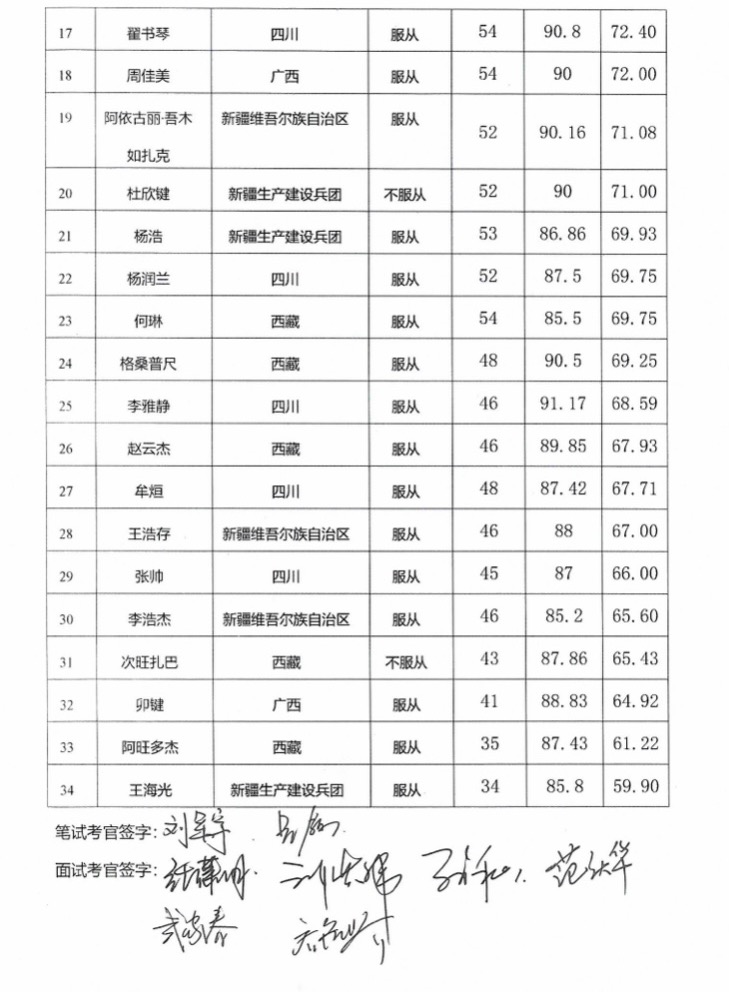 17 翟书琴 四川 服从 54 90.8 72.40
18 周佳美 广西 服从 54 90 72.00
19 阿依古丽·吾木如扎克 新疆维吾尔族自治区 服从 52 90.16 71.08
20 杜欣键 新疆生产建设兵团 不服从 52 90 71.00
21 杨浩 新疆生产建设兵团 服从 53 86.86 69.93
22 杨润兰 四川 服从 52 87.5 69.75
23 何琳 西藏 服从 54 85.5 69.75
24 格桑普尺 西藏 服从 48 90.5 69.25
25 李雅静 四川 服从 46 91.17 68.59
26 赵云杰 西藏 服从 46 89.85 67.93
27 牟烜 四川 服从 48 87.42 67.71
28 王浩存 新疆维吾尔族自治区 服从 46 88 67.00
29 张帅 四川 服从 45 87 66.00
30 李浩杰 新疆维吾尔族自治区 服从 46 85.2 65.60
31 次旺扎巴 西藏 不服从 43 87.86 65.43
32 卯键 广西 服从 41 88.83 64.92
33 阿旺多杰 西藏 服从 35 87.43 61.22
34 王海光 新疆生产建设兵团 服从 34 85.8 59.90
笔试考官签字:
面试考官签字: